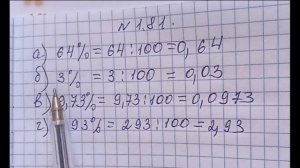 № 1.81.
а) 64% = 64 : 100 = 0,64
б) 3% = 3 : 100 = 0,03
в) 9,73% = 9,73 : 100 = 0,0973
г) 93% = 293 : 100 = 2,93